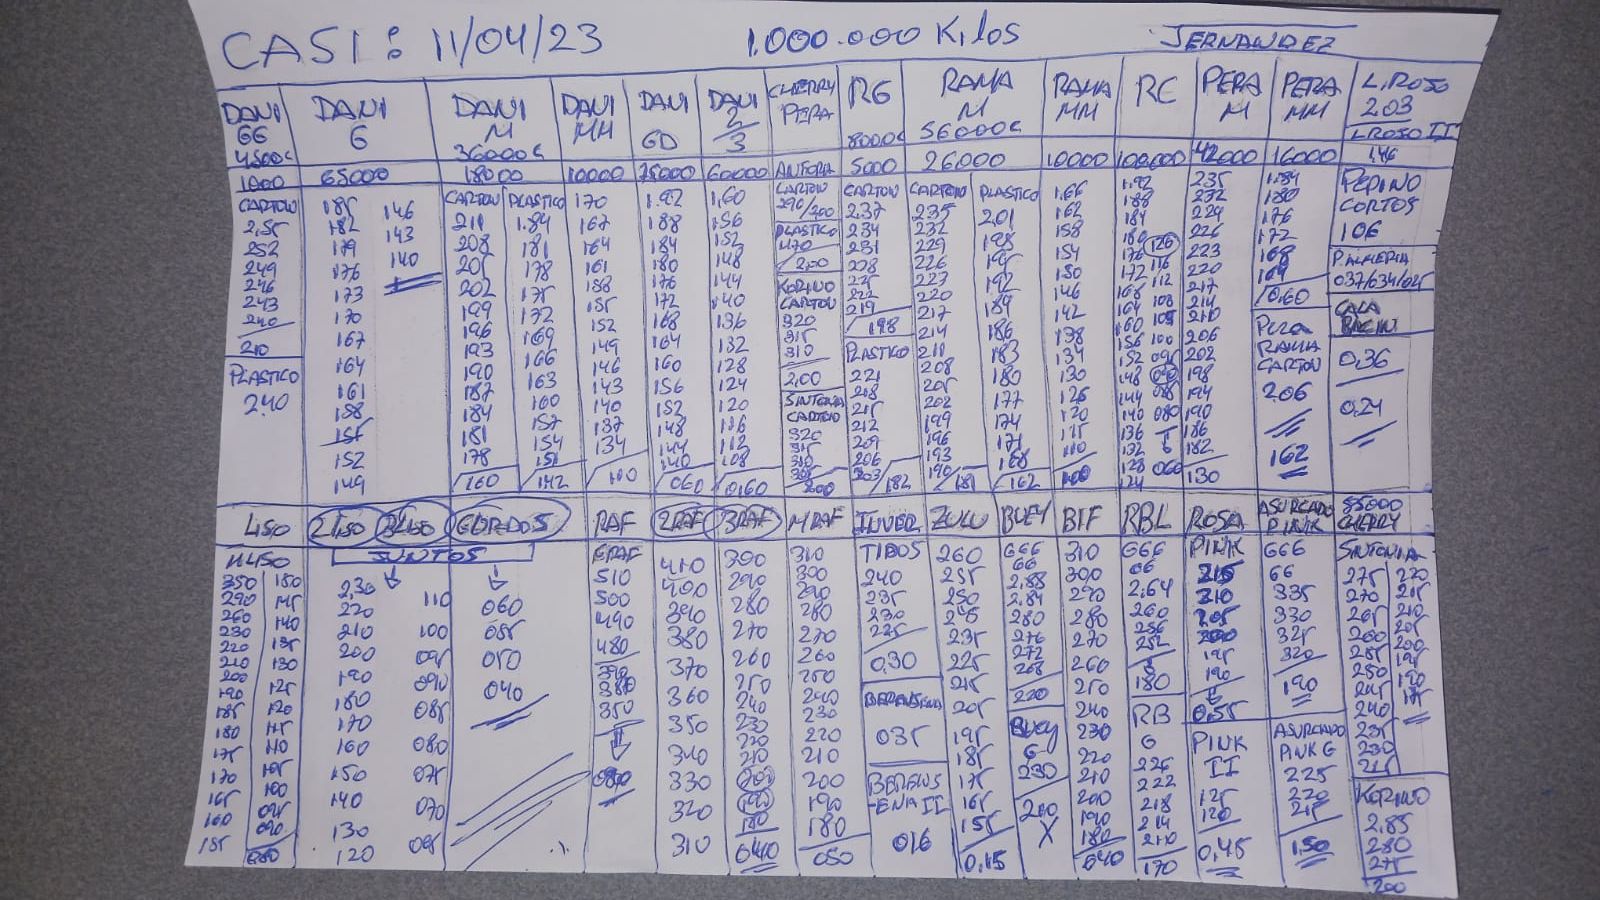 CASI: 11/04/23 1.000.000 Kilos JERNANDEZ
DANI GG 4500c
1000
CARTON
2,55
252
249
246
243
240
210
PLASTICO
2.40
DANI G
65000
185 146
182 143
179 140
176
173
170
167
164
161
158
155
152
149
DANI M 36000c
18000
CARTON PLASTICO
211 1.84
208 181
205 178
202 175
199 172
196 169
193 166
190 163
187 160
184 157
181 154
178 151
160 142
DANI MM
10000
170
167
164
161
158
155
152
149
146
143
140
137
134
100
DANI GD
75000
1.92
188
184
180
176
172
168
164
160
156
152
148
144
140
060
DANI 2/3
60000
1,60
156
152
148
144
140
136
132
128
124
120
116
112
108
0,60
CHERRY PERA
CARTON
290/200
PLASTICO
2,00
KORINO
CARTON
320
315
310
2,00
SINTONIA
CARTON
320
315
310
305
200
RG
8000c
5000
CARTON
2.37
234
231
228
225
222
219
198
PLASTICO
221
218
215
212
209
206
203/182
RAMA M
56000c
26000
CARTON PLASTICO
235 201
232 198
229 195
226 192
223 189
220 186
217 183
214 180
211 177
208 174
205 171
202 168
199 162
196
193
190/181
RAMA MM
10000
1,66
162
158
154
150
146
142
138
134
130
126
120
115
110
100
RE
100.000
1.92
188
184
180 126
176 116
172 112
168 108
164 105
160 100
156 095
152 090
148 085
144 080
140
136
132
128 060
124
PERA M
42000
235
232
229
226
223
220
217
214
210
206
202
198
194
190
186
182
130
PERA MM
16000
1.84
180
176
172
168
164
/0,60
PERA
RAMA
CARTON
206
162
L.ROSO
203
L ROSO II
1,46
PEPINO
CORTOS
106
P.ALMERIA
037/034/025
0,36
0,24
LISO
M LISO
350 180
290 145
260 140
230 135
220 130
210 125
200 120
190 115
185 110
180 105
175 100
170 095
165 090
160 080
155
2 LISO 3 LISO
JUNTOS
2,30 110
220 100
210 095
200 090
190 085
180 080
170 075
160 070
150 065
140
130
120
GORDOS
060
055
050
040
RAF
GRAF
510
500
490
480
390
380
350
080
2RAF
410
400
390
380
370
360
350
340
330
320
310
3RAF
300
290
280
270
260
250
240
230
220
210
200
190
180
040
M RAF
310
300
290
280
270
260
250
240
230
220
210
200
190
180
050
INVER
TIBOS
240
235
230
225
0,30
BERENGENA
035
BERENG
-ENA II
016
ZULU
260
255
250
245
235
225
215
205
195
185
175
165
155
0,15
BUEY
666
66
2,88
2,84
280
276
272
268
220
BUEY
G
230
200
X
BIF
310
300
290
280
270
260
250
240
230
220
210
200
190
180
040
RBL
666
66
2,64
260
256
252
180
RB
G
226
222
218
214
210
170
ROSA
PINK
215
210
205
200
195
190
0,55
PINK
II
125
120
0,45
ASURCADO
PINK
666
66
335
330
325
320
190
ASURCADO
PINK G
225
220
215
1,50
85000
CHERRY
SINTONIA
275 220
270 215
265 210
260 205
255 200
250 195
245 190
240 175
235
230
215
KORINO
2,85
280
275
200